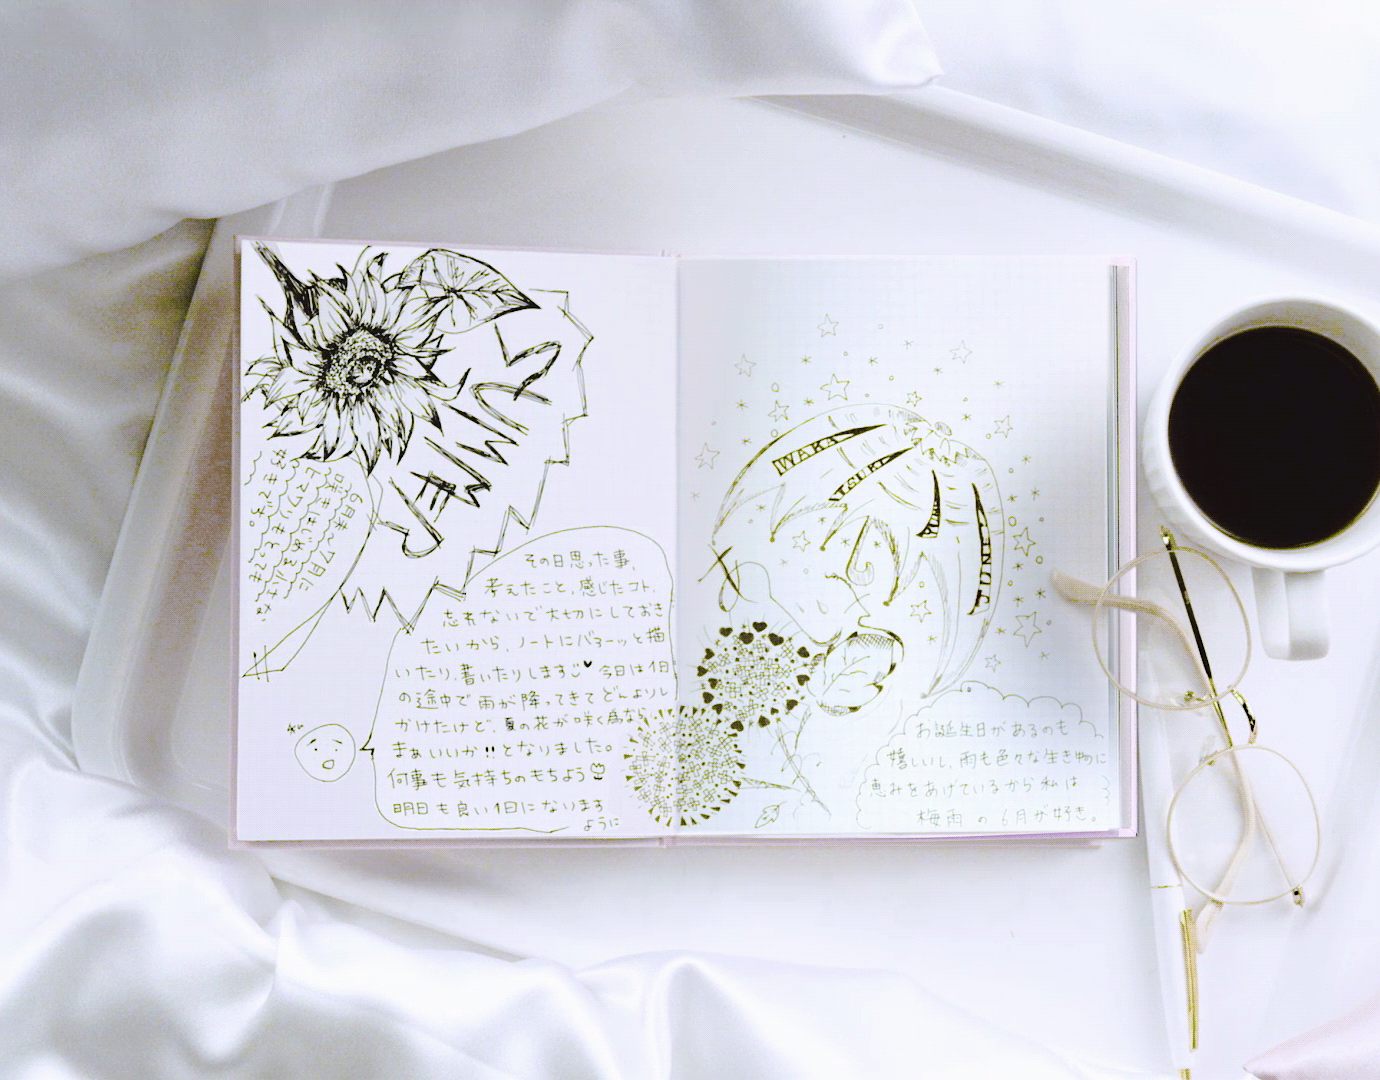 JUNE
6月末〜7月に
咲きはじめるけど
ヒマワリもとってき
好きです。
その日思った事、
考えたこと、感じたコト、
忘れないで大切にしておき
たいから、ノートにバァーッと描
いたり、書いたりします♥ 今日は1日
の途中で雨が降ってきてどんよりし
かけたけど、夏の花が咲く為なら
まぁいいか!!となりました。
何事も気持ちのもちよう
明日も良い1日になります
ように
WAKA
ATSUKI
JUNE
お誕生日があるのも
嬉しいし、雨も色々な生き物に
恵みをあげているから私は
梅雨の6月が好き。